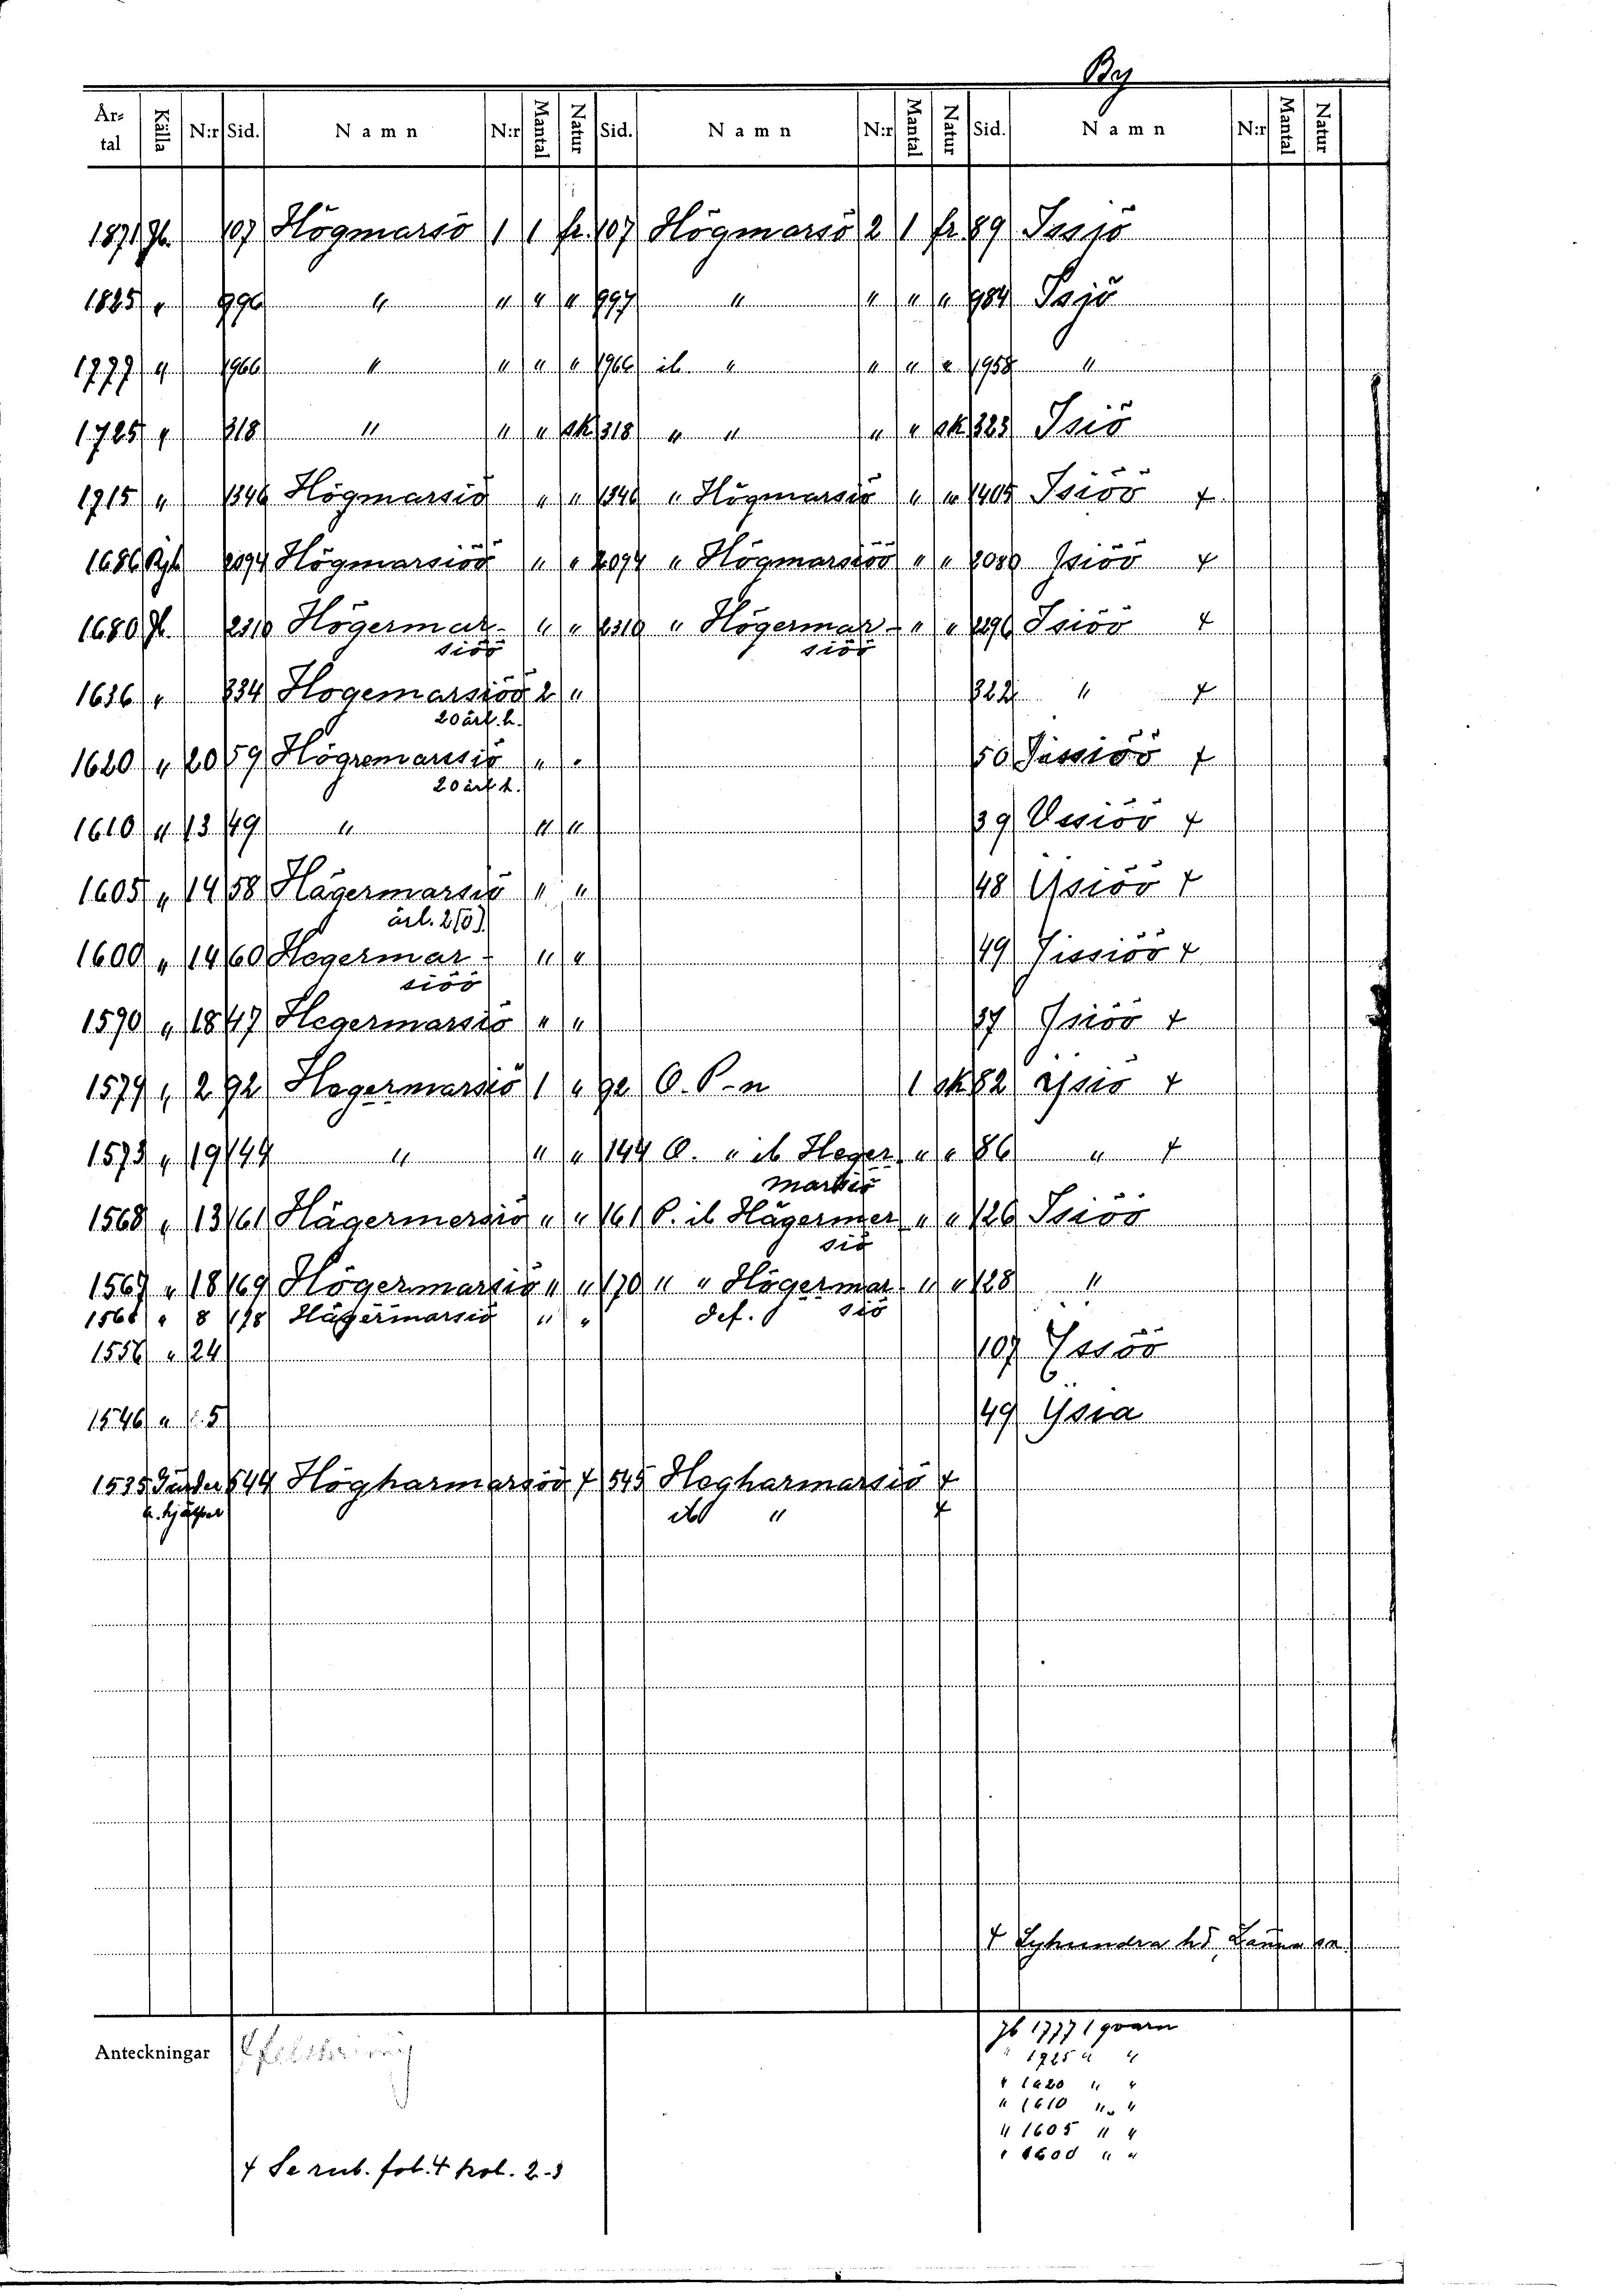 By
Är-tal Källa N:r Sid. Namn N:r Mantal Natur Sid. Namn N:r Mantal Natur Sid. Namn N:r Mantal Natur
1871 Jb. 107 Högmarsö 1 1 fr. 107 Högmarsö 2 1 fr. 89 Issjö
1825 " 996 " " " " 997 " " " " 984 Isjö
1777 " 1966 " " " " 1966 ib. " " " " 1958 "
1725 " 318 " " " sk 318 " " " " sk 323 Isiö
1715 " 1346 Högmarsiö " " 1346 " Högmarsiö " " 1405 Isiöö +
1686 Rjb 2094 Högmarsiöö " " 2094 " Högmarsiöö " " 2080 Isiöö +
1680 Jb. 2310 Högermar- " " 2310 " Högermar- " " 2296 Isiöö +
siöö siöö
1636 " 334 Hogemarsiöö 2 " 322 " +
20 ärl. h.
1620 " 20 59 Högremarssiö " " 50 Jissiöö +
20 ärl h.
1610 " 13 49 " " " 39 Ussiöö +
1605 " 14 58 Hagermarsiö " " 48 Ysiöö +
ärl. 2(0)
1600 " 14 60 Hegermar- " " 49 Jissiöö +
siöö
1590 " 18 47 Hegermarsiö " " 37 Isiöö +
1579 " 2 92 Hagermarsiö 1 " 92 O. P-n 1 sk 82 ysiö +
1573 " 19 144 " " " 144 O. " ib Heger " " 86 " +
marsiö
1568 " 13 161 Hägermersiö " " 161 P. ib Hägermer " " 126 Isiöö
siö
1567 " 18 169 Högermarsiö " " 170 " " Högermar " " 128 "
1561 " 8 198 Hägermarsiö " " def. siö
1556 " 24 107 Yssöö
1546 " 5 49 Ysia
1535 Gärder 544 Högharmarsiöö + 545 Hogharmarsiö +
o. hjälper ib " +
+ Lyhundra hd, Länna sn
Anteckningar
Jb 1777 1 qvarn
" 1725 " "
" 1620 " "
" 1610 " "
" 1605 " "
" 1600 " "
+ Se rub. fol. 4 kol. 2-3